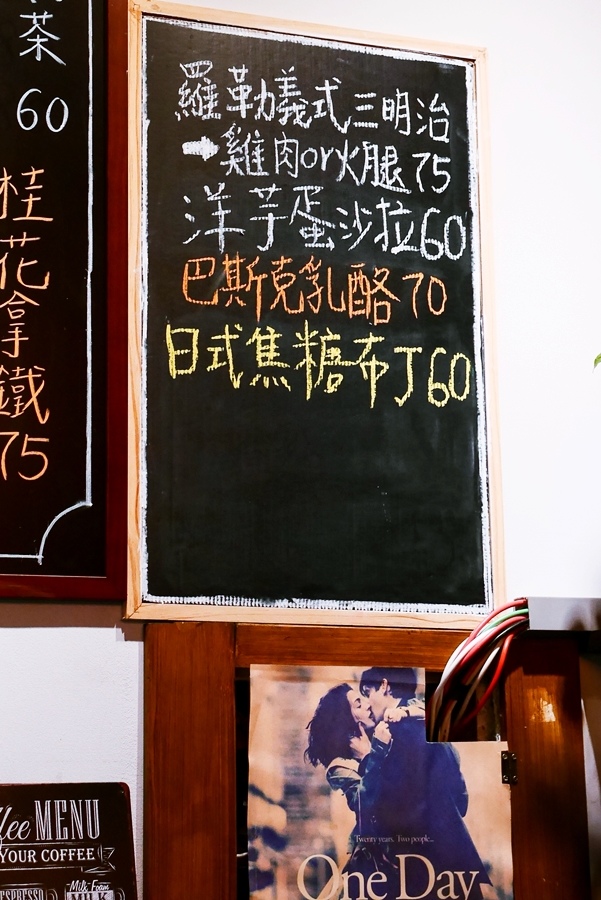 茶
60
桂
花
拿
鐵
75
羅勒義式三明治
➡雞肉or火腿75
洋芋蛋沙拉60
巴斯克乳酪70
日式焦糖布丁60
Twenty years. Two people...
One Day
MENU
YOUR COFFEE
ESPRESSO
Milk Foam
MILK